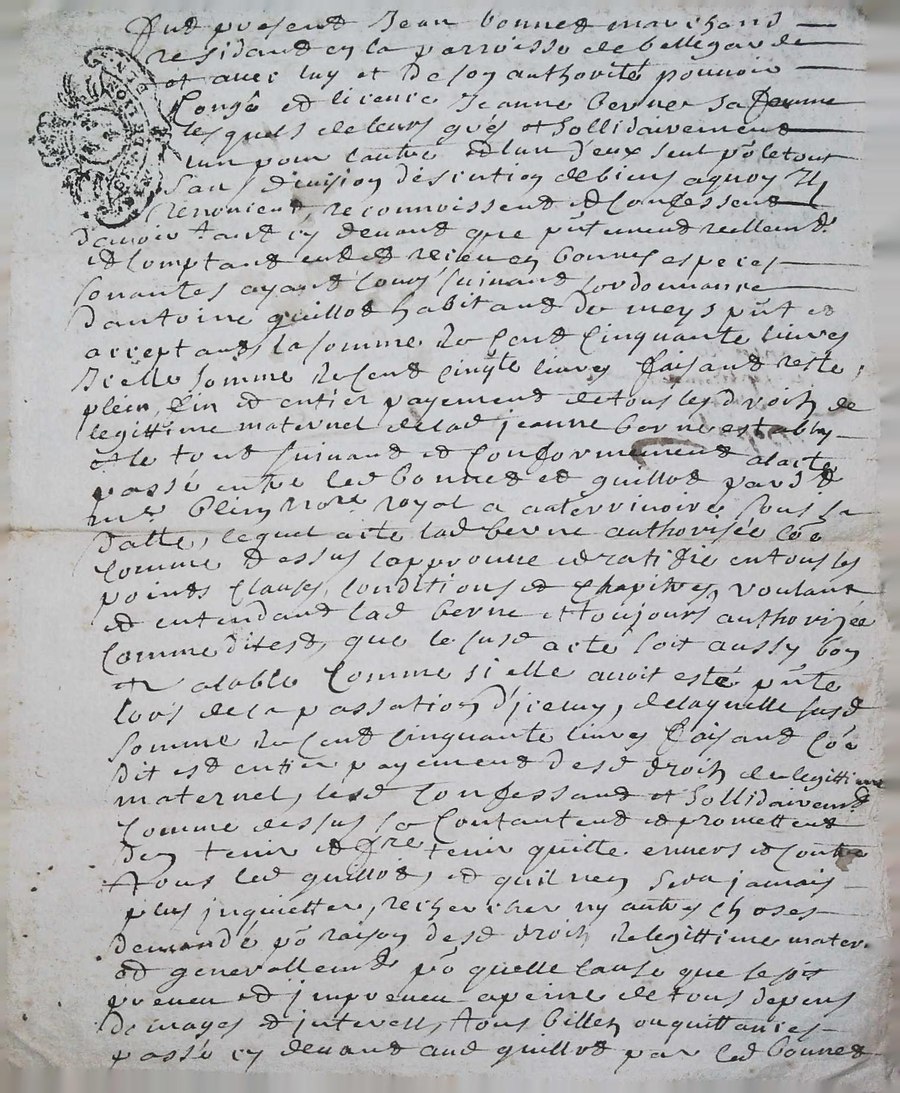 Fut present Jean bonned marchand
residand en la parroisse de bellegarde
et avec luy et de son authorité pouvoir
Congé et licence Jeanne berne sa femme
lesquels de leurs grés et sollidairement
lun pour lautre et lun d'eux seul pr le tout
sans division discution de biens a quoy ils
renoncient reconnoissent et confessent
d'avoir tant cy devand que pntement reellemt
et comptand eud et receu en bonnes especes
sonantes ayand cours suivand lordonnance
d'antoine guillod habitand de meys pnt et
acceptand la somme de cend cinquante livres
Icelle somme de cend cinqte livres faisand reste,
plein, fin et entier payemend de tous les droits de
legittime maternel de lad jeanne berne establie
et le toud suivand et conformemend a lacte
passé entre led bonned et guillod pard
me blein nore royal a sous sa
datte, lequel acte lad berne authorisée coe
comme dessus lapprouve et ratifie en tous les
points clauses, conditions et chapitres, voulant
et entendand lad berne et toujours authorisée
comme dit est, que le susd acte soit aussy bon
et valable comme si elle avoit esté pnte
lors de la passation d'iceluy, de laquelle susd
somme de cend cinquante livres faisand coe
dit est entier payemend desd droits de legittime
maternel, lesd confessand et sollidairemd
comme dessus se contantend et promettend
d'en tenir et fre tenir quitte envers et contre
tous led guillod, et quil n'en sera jamais
plus inquietter, rechercher ny autres choses
demandé pr raison desd droits de legittime mater.
et generallemt pr quelle cause que se soit
preveu et impreveu a peine de tous depens
domages et interets, tous billets ou quittances
passé cy devand aud guillod par led bonned